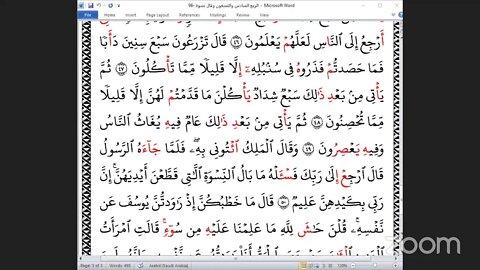 الربع السادس والتسعون وقال نسوة -96 - Microsoft Word
File Home Insert Page Layout References Mailings Review View
أَرْجِعُ إِلَى النَّاسِ لَعَلَّهُمْ يَعْلَمُونَ ٤٦ قَالَ تَزْرَعُونَ سَبْعَ سِنِينَ دَأَبًا
فَمَا حَصَدتُّمْ فَذَرُوهُ فِي سُنبُلِهِ إِلَّا قَلِيلًا مِّمَّا تَأْكُلُونَ ٤٧ ثُمَّ
يَأْتِي مِن بَعْدِ ذَٰلِكَ سَبْعٌ شِدَادٌ يَأْكُلْنَ مَا قَدَّمْتُمْ لَهُنَّ إِلَّا قَلِيلًا
مِّمَّا تُحْصِنُونَ ٤٨ ثُمَّ يَأْتِي مِن بَعْدِ ذَٰلِكَ عَامٌ فِيهِ يُغَاثُ النَّاسُ
وَفِيهِ يَعْصِرُونَ ٤٩ وَقَالَ الْمَلِكُ ائْتُونِي بِهِ فَلَمَّا جَاءَهُ الرَّسُولُ
قَالَ ارْجِعْ إِلَىٰ رَبِّكَ فَسْـَٔلْهُ مَا بَالُ النِّسْوَةِ الَّتِي قَطَّعْنَ أَيْدِيَهُنَّ إِنَّ
رَبِّي بِكَيْدِهِنَّ عَلِيمٌ ٥٠ قَالَ مَا خَطْبُكُنَّ إِذْ رَاوَدتُّنَّ يُوسُفَ عَن
نَّفْسِهِ قُلْنَ حَاشَ لِلَّهِ مَا عَلِمْنَا عَلَيْهِ مِن سُوءٍ قَالَتِ امْرَأَتُ
zoom
Page: 3 of 3 Words: 495 Arabic (Saudi Arabia) 120%